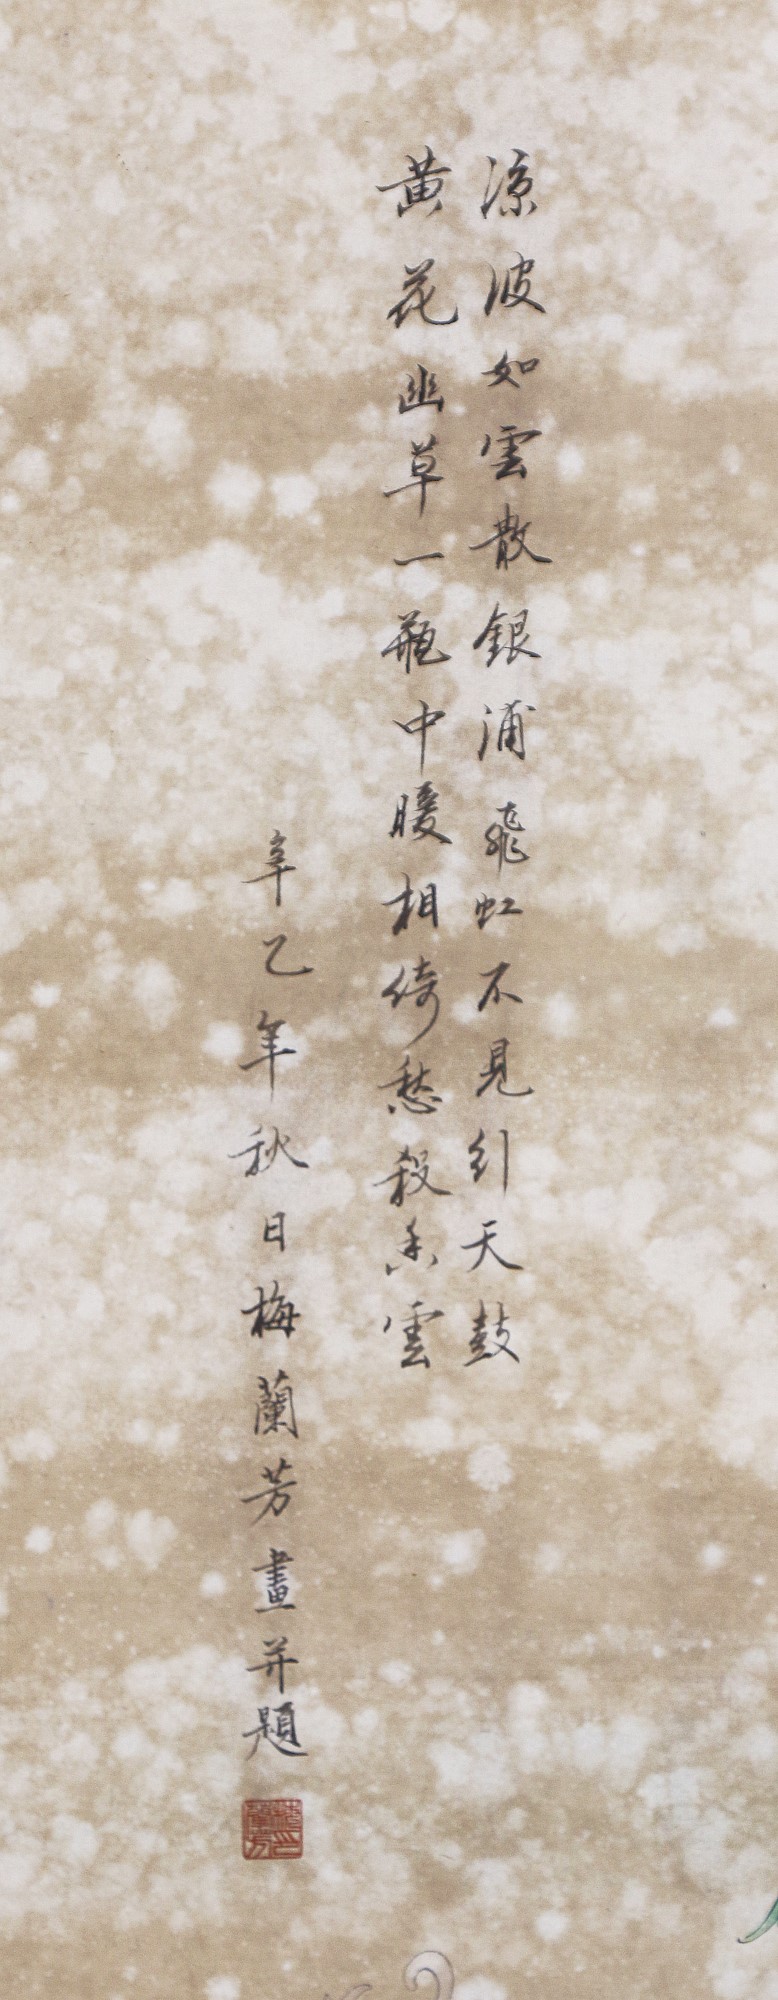 涼波如雲散銀浦飛虹不見引天鼓
黃花幽草一瓶中暖相倚愁殺香雲
辛乙年秋日梅蘭芳畫并題